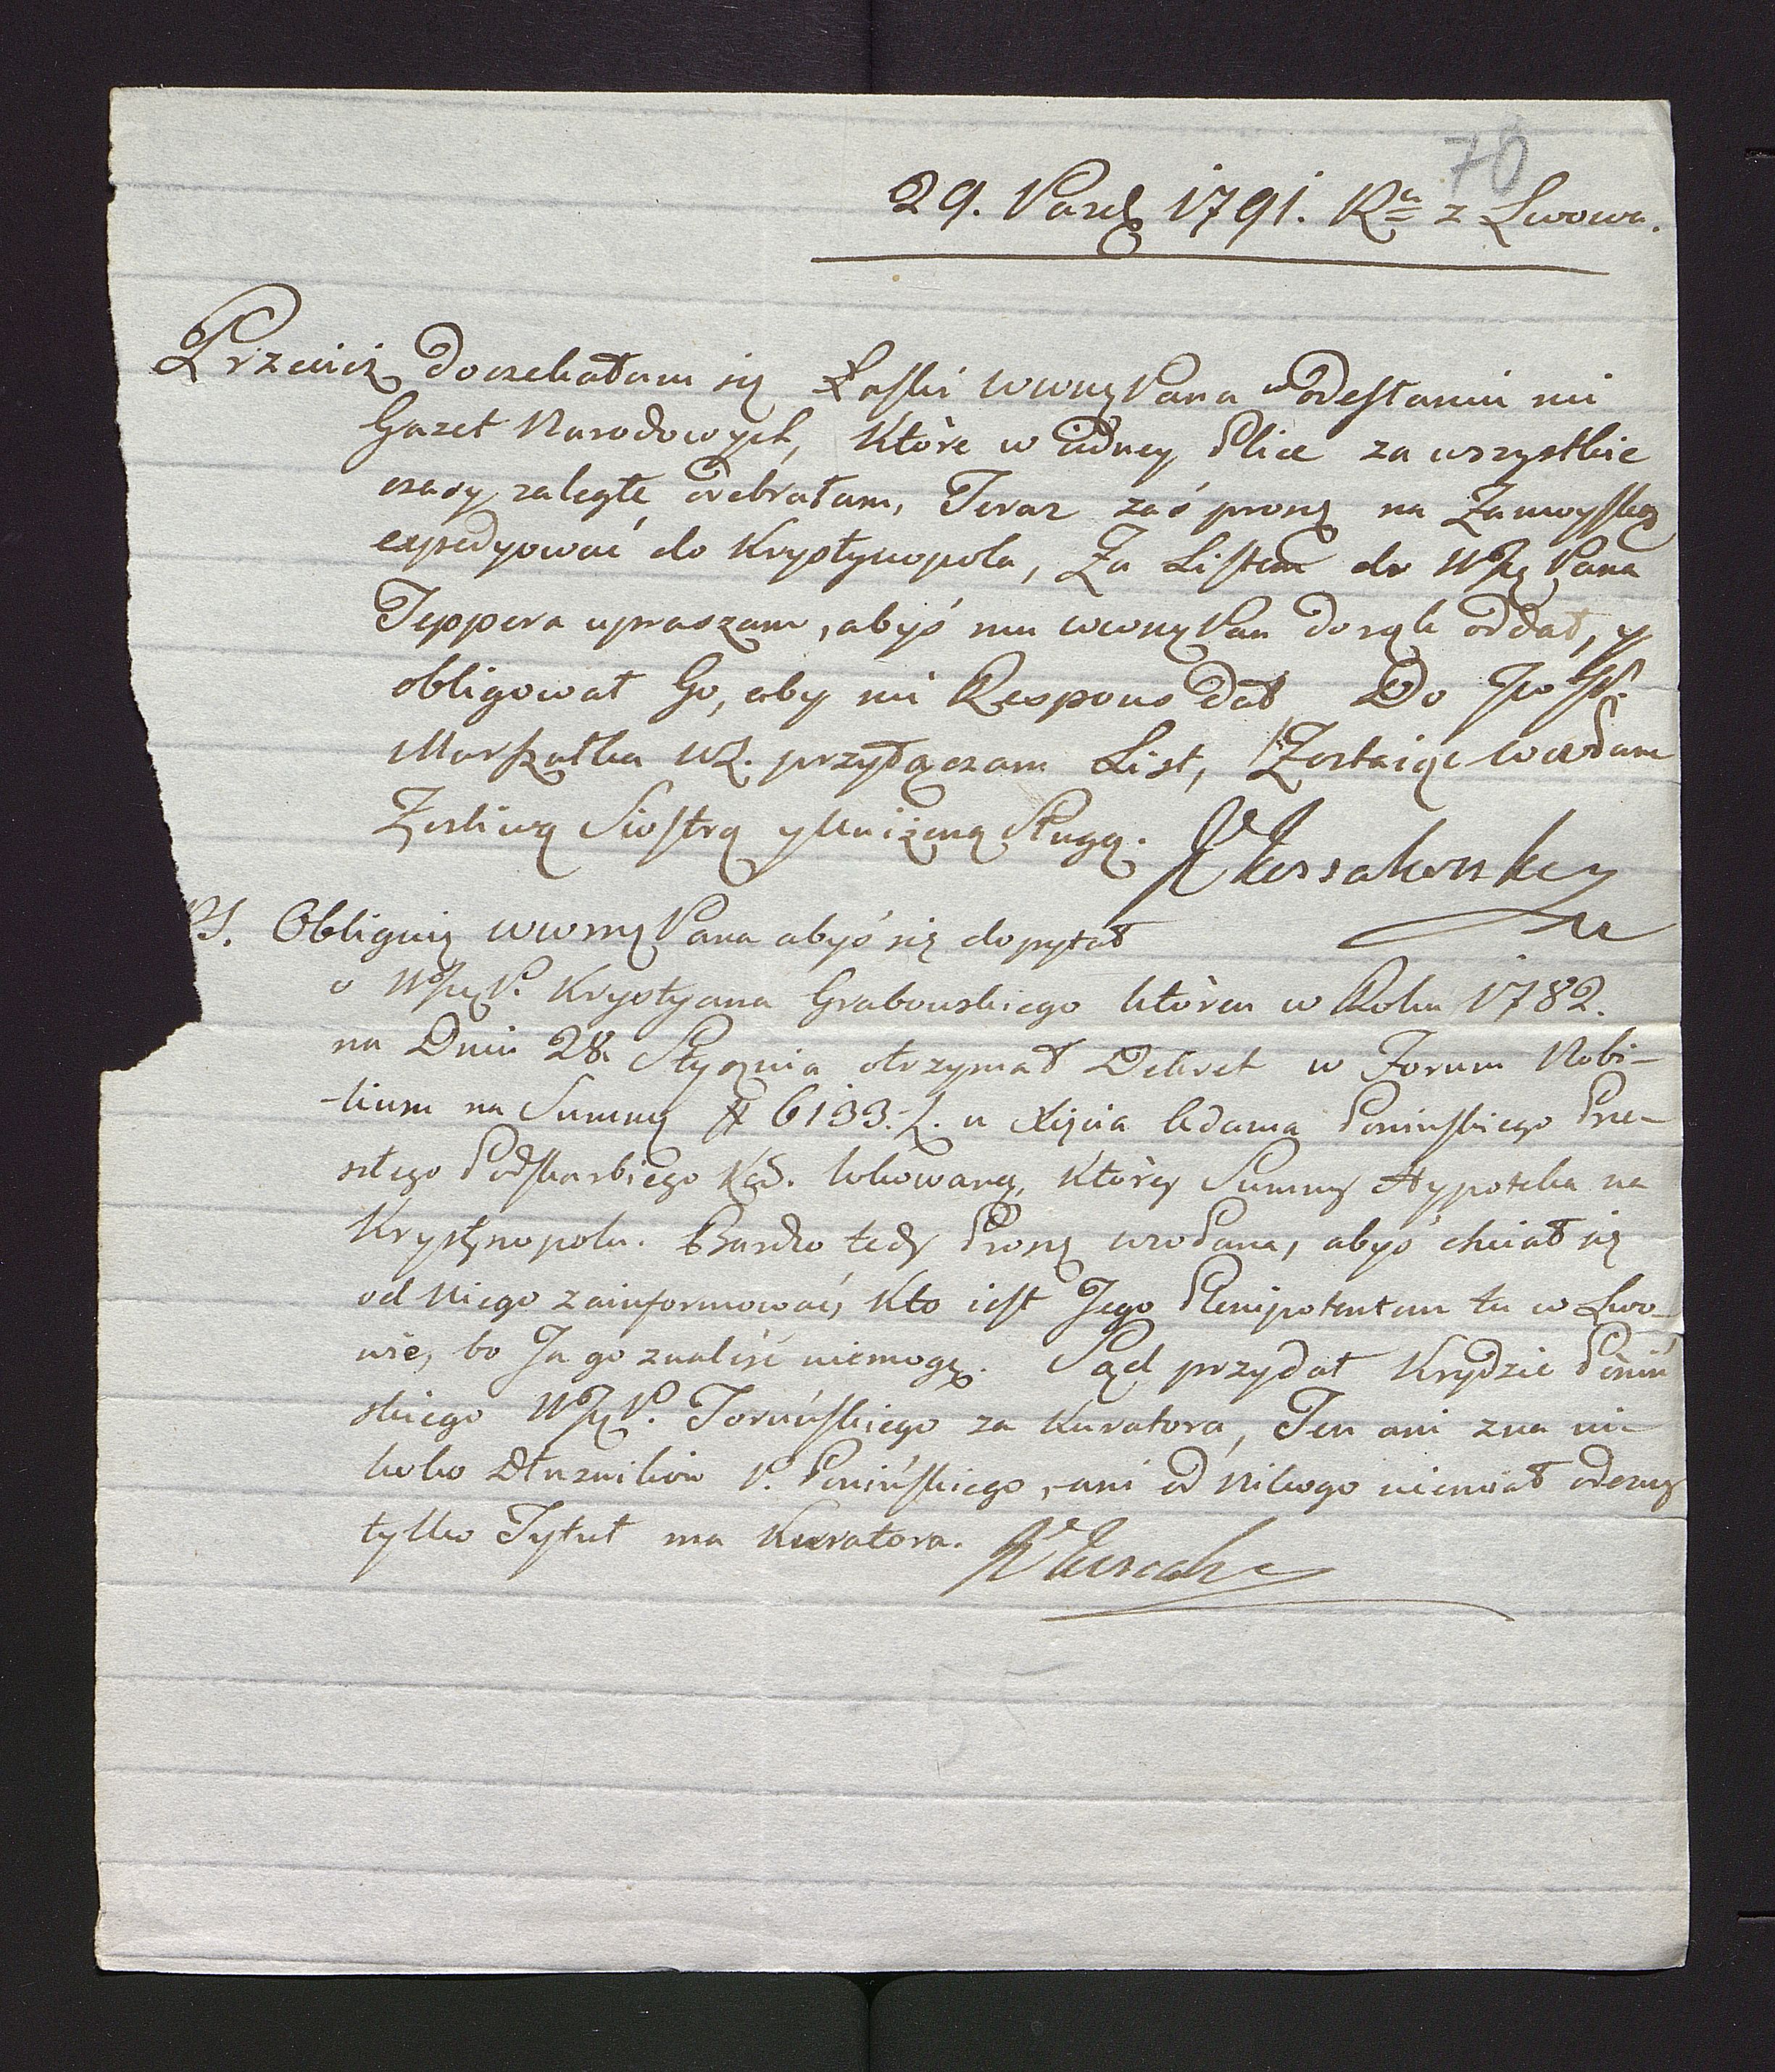 70
29. Paźd 1791. Ru z Lwowa.
Przecież doczekałam się Łaski WWMPana w odesłaniu mi
Gazet Narodowych, które w iedney Plice za wszystkie
czasy zaległe odebrałam, Teraz zaś proszę na Zamoyskie
expedyować do Krystynopola, Za Listem do WJP Pana
Teppera upraszam, abyś mu WWMPan do rąk oddał, y
obligował Go, aby mi Respons dał Do JW JP.
Marszałka WL. przyłączam List, Zostaiąc wiedam
Zyczliwą Siostrą y Uniżoną Sługą.
PKossakowska
PS. Obliguię WWMPana abyś się dopytał
o WJP. Krystyana Grabowskiego któren w Roku 1782.
na Dniu 28. Stycznia otrzymał Dekret w Forum Nobi-
-lium na Summę # 6133.f. u Xięcia Adama Ponińskiego Prze-
szłego Podskarbiego Kor. lokowaną, którey Summy Hypoteka na
Krystynopolu. Bardzo tedy Proszę WWPana, abyś chciał się
od Niego zainformować, kto iest Jego Plenipotentem tu w Lwo-
wie, bo Ja go znaliść niemogę. Sąd przydał Krydzie Poniń
skiego WJP. Toruńskiego za Kuratora, Ten ani zna ni-
kogo Dłużników P. Ponińskiego, ani od Nikogo niemiał odezwy
tylko Tytuł ma Kuratora.